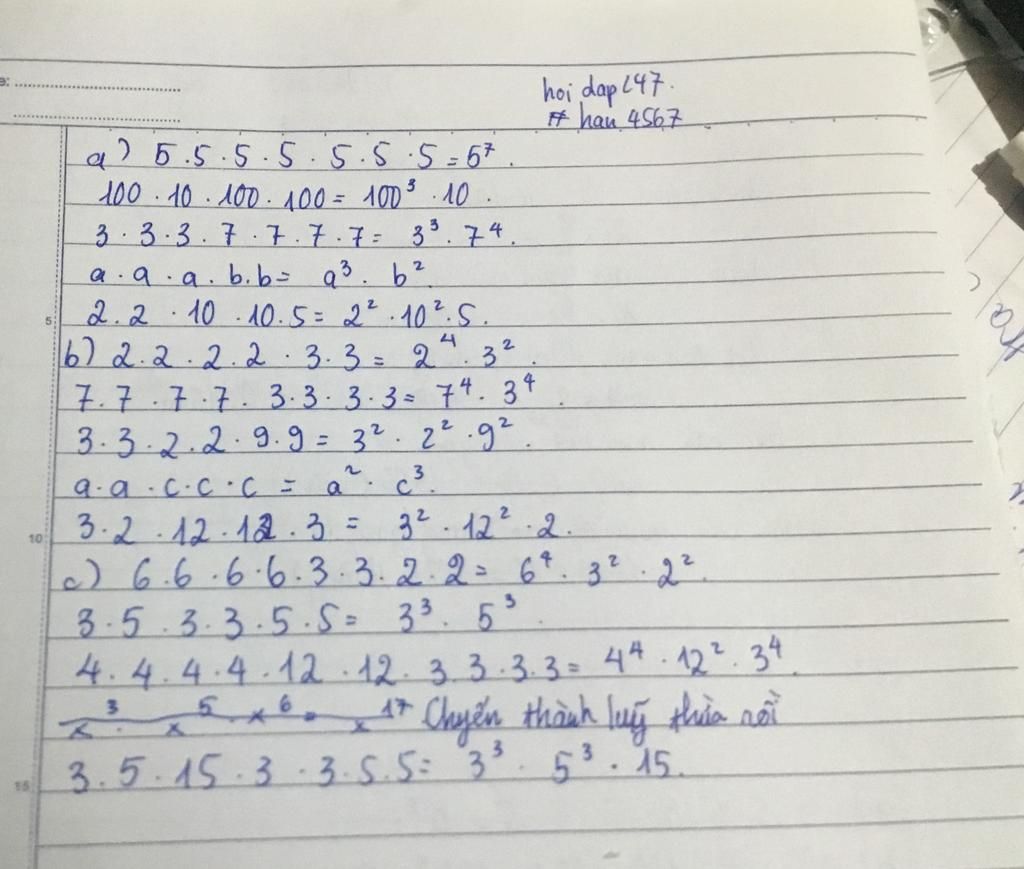 e: ........................
hoi dap 247.
# han 4567
a) 5.5.5.5.5.5.5=5⁷.
100.10.100.100=100³.10.
3.3.3.7.7.7.7=3³.7⁴.
a.a.a.b.b=a³.b²
5
2.2.10.10.5=2².10².5.
b) 2.2.2.2.3.3=2⁴.3².
7.7.7.7.3.3.3.3=7⁴.3⁴.
3.3.2.2.9.9=3².2².9².
a.a.c.c.c=a².c³.
10
3.2.12.12.3=3².12².2.
c) 6.6.6.6.3.3.2.2=6⁴.3².2².
3.5.3.3.5.5=3³.5³.
4.4.4.4.12.12.3.3.3.3=4⁴.12².3⁴.
x³.x⁵.x⁶=x¹⁷ Chyển thành luỹ thừa rồi
15
3.5.15.3.3.5.5=3³.5³.15.